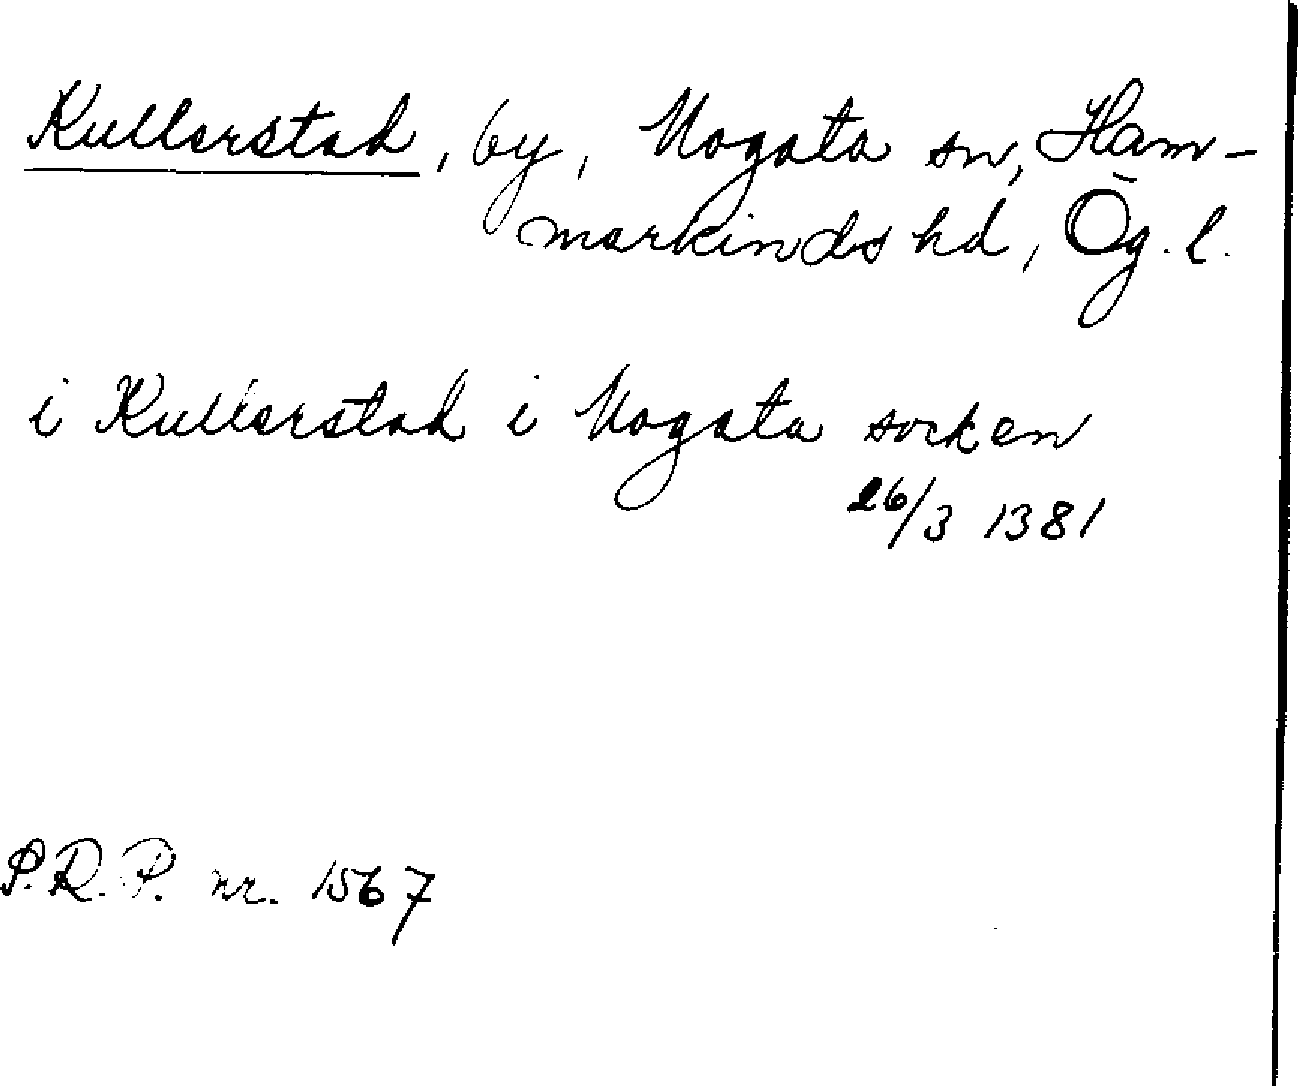 Kullerstad, by, Mogata sn, Ham-
markinds hd, Ög. l.
i Kullerstad i Mogata socken
26/3 1381
P.R.P. nr. 1567